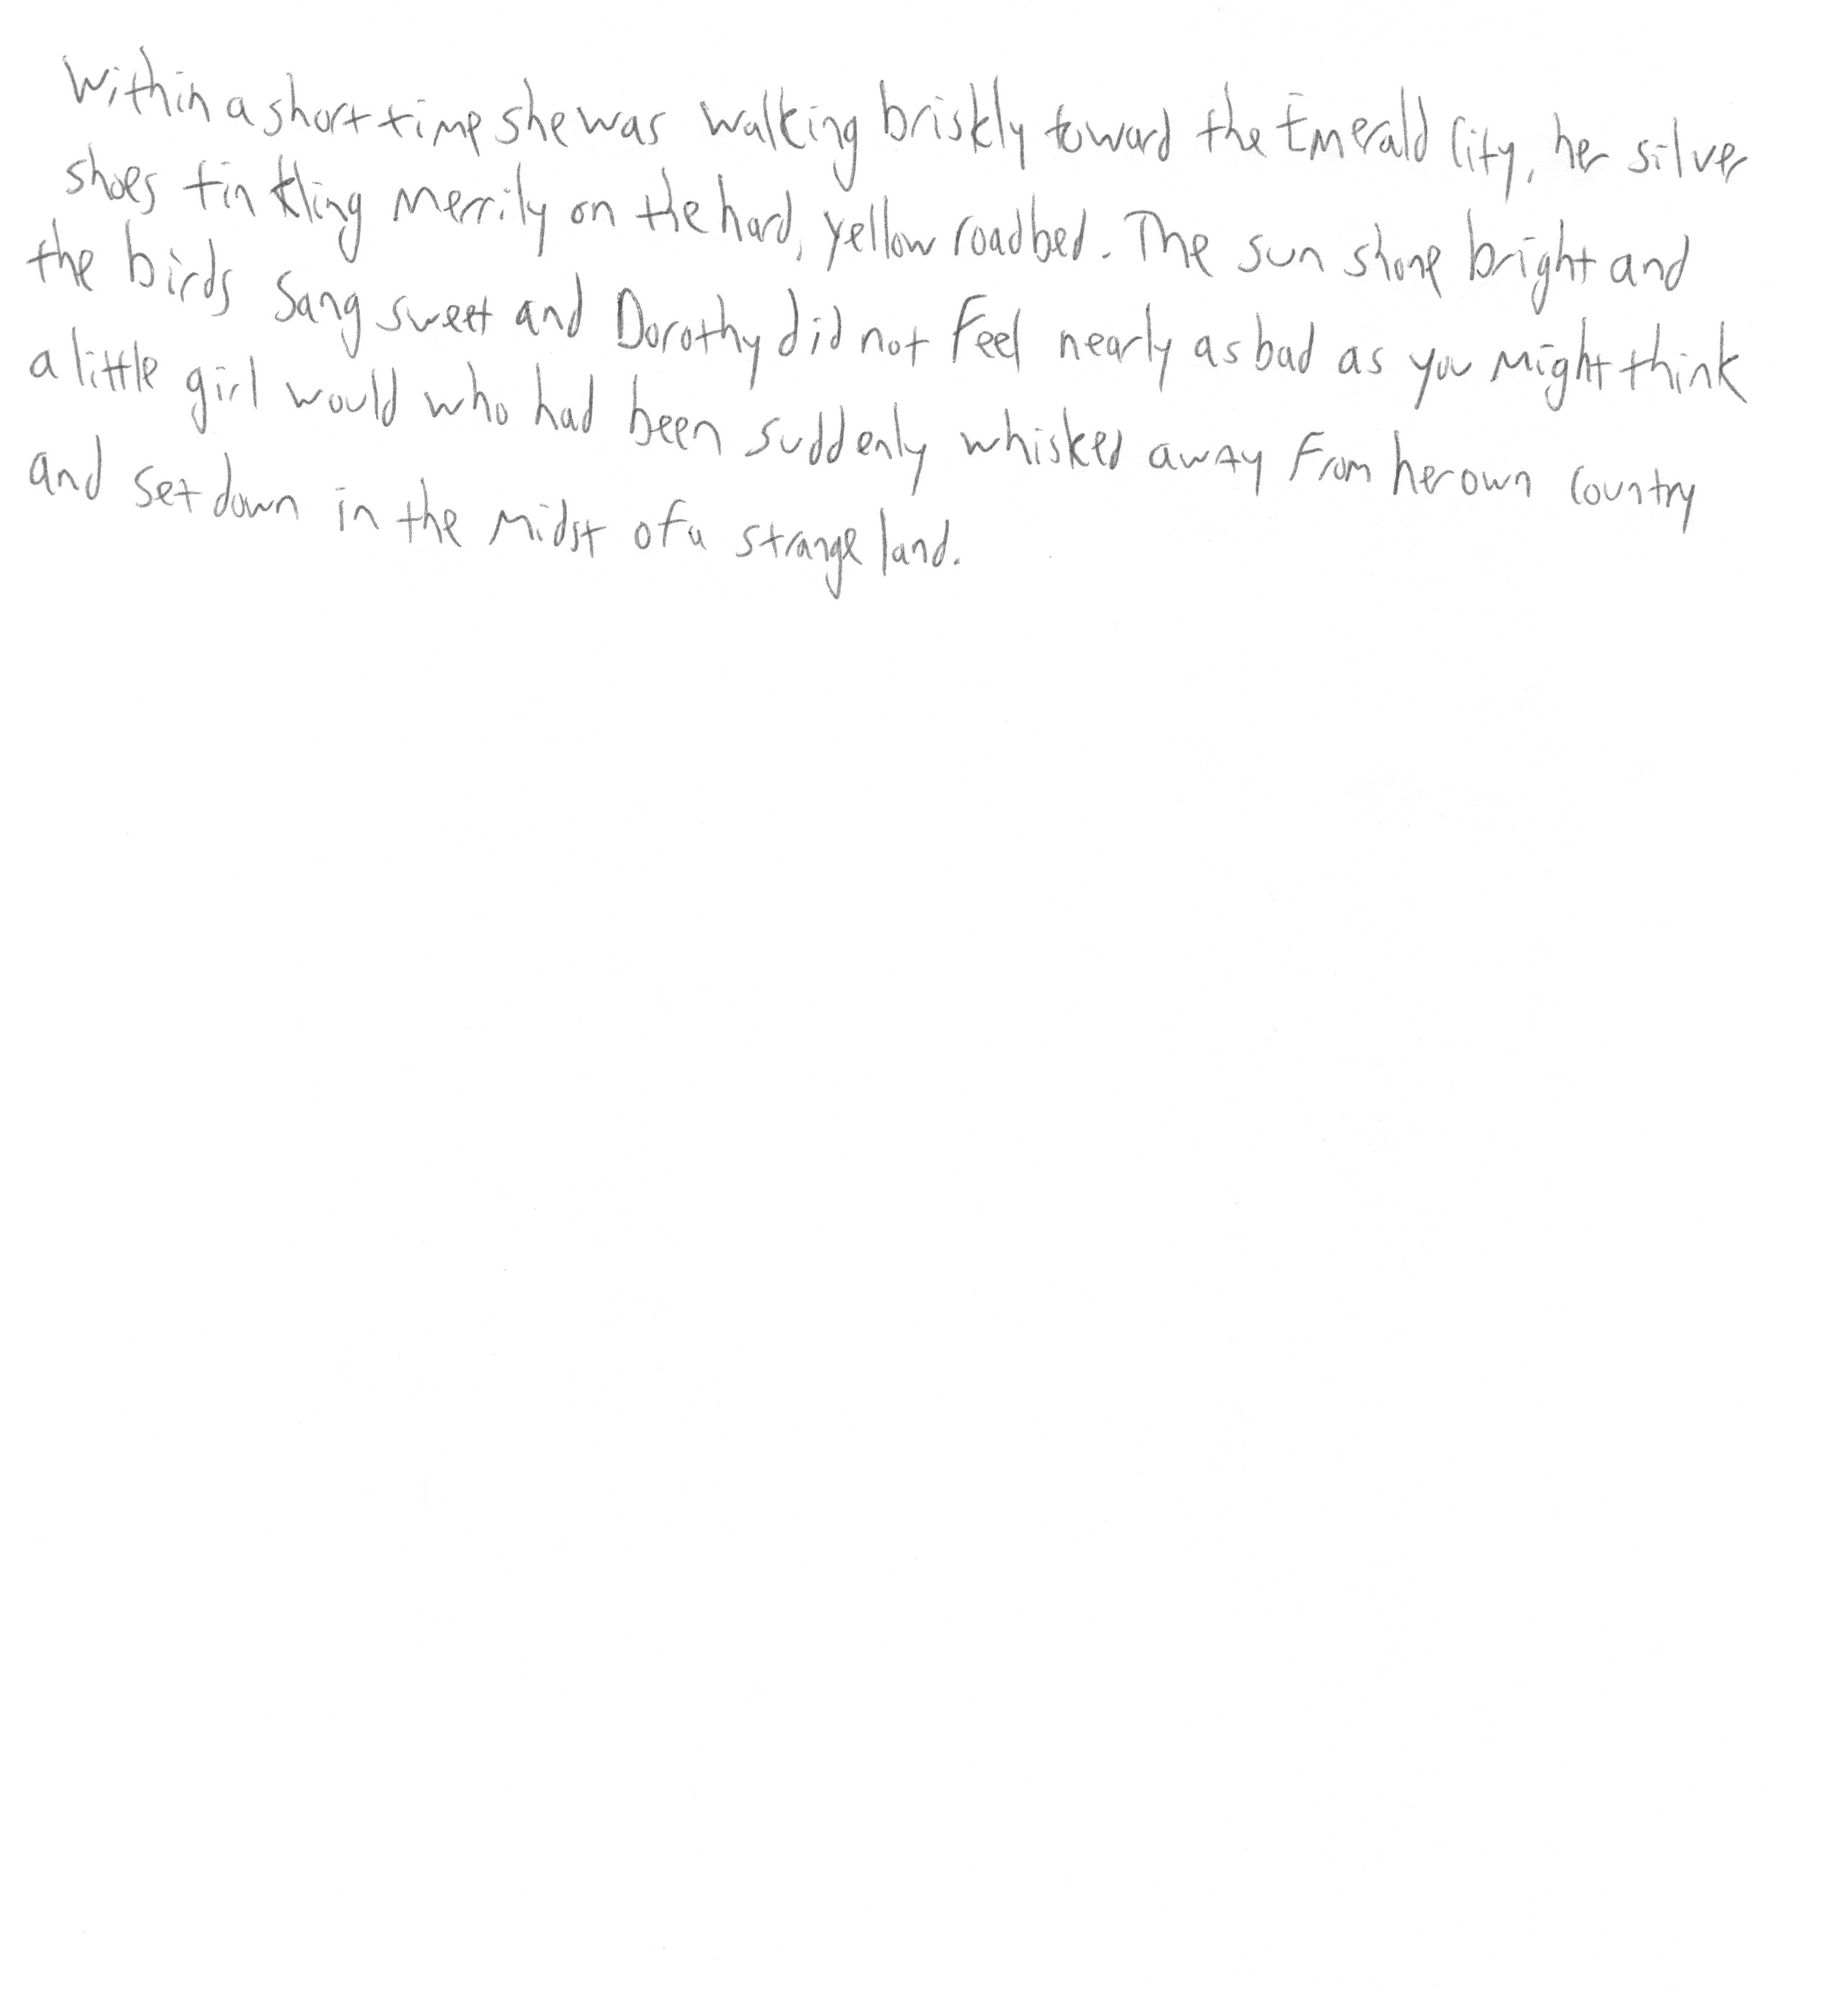 Within a short time she was walking briskly toward the Emerald City, her silver
shoes tinkling merrily on the hard, yellow roadbed. The sun shone bright and
the birds sang sweet and Dorothy did not feel nearly as bad as you might think
a little girl would who had been suddenly whisked away from her own country
and set down in the midst of a strange land.